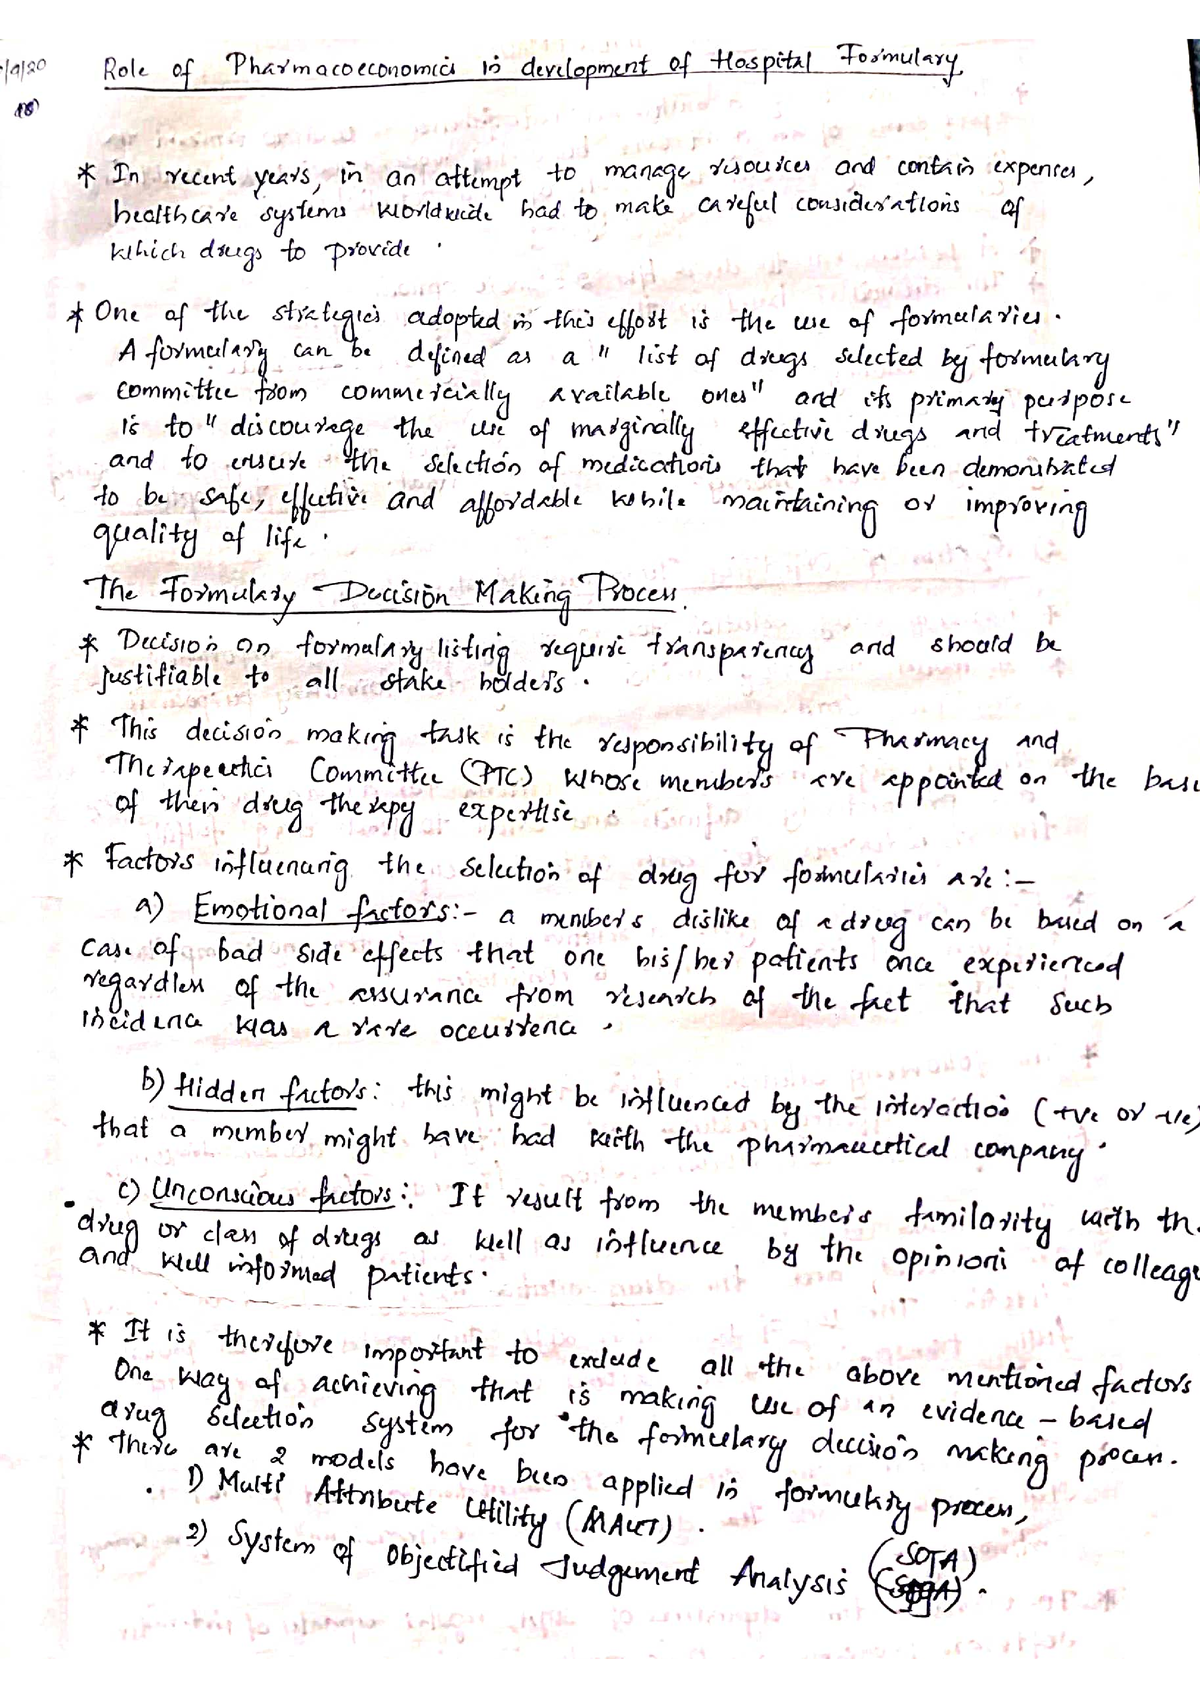 /9/20
Role of Pharmacoeconomics in development of Hospital Formulary.
* In recent years, in an attempt to manage resources and contain expenses,
healthcare systems worldwide had to make careful considerations of
which drugs to provide .
* One of the strategies adopted in this effort is the use of formularies .
A formulary can be defined as a " list of drugs selected by formulary
committee from commercially available ones" and its primary purpose
is to " discourage the use of marginally effective drugs and treatments"
and to ensure the selection of medications that have been demonstrated
to be safe, effective and affordable while maintaining or improving
quality of life .
The Formulary Decision Making Process.
* Decision on formulary listing require transparency and should be
justifiable to all stake holders .
* This decision making task is the responsibility of Pharmacy and
Therapeutics Committee (PTC) whose members are appointed on the basi
of their drug therapy expertise .
* Factors influencing the selection of drug for formularies are :-
a) Emotional factors:- a members dislike of a drug can be based on a
case of bad side effects that one his/her patients once experienced
regardless of the assurance from research of the fact that such
incidence was a rare occurrence .
b) Hidden factors: this might be influenced by the interaction (+ve or -ve)
that a member might have had with the pharmaceutical company .
c) Unconscious factors:. It result from the members familarity with th
drug or class of drugs as well as influence by the opinion of colleagu
and well informed patients .
* It is therefore important to exclude all the above mentioned factors
One way of achieving that is making use of an evidence - based
drug selection system for the formulary decision making process.
* There are 2 models have been applied in formulary process,
1) Multi Attribute Utility (MAUT) .
2) System of Objectified Judgement Analysis (SOJA) .